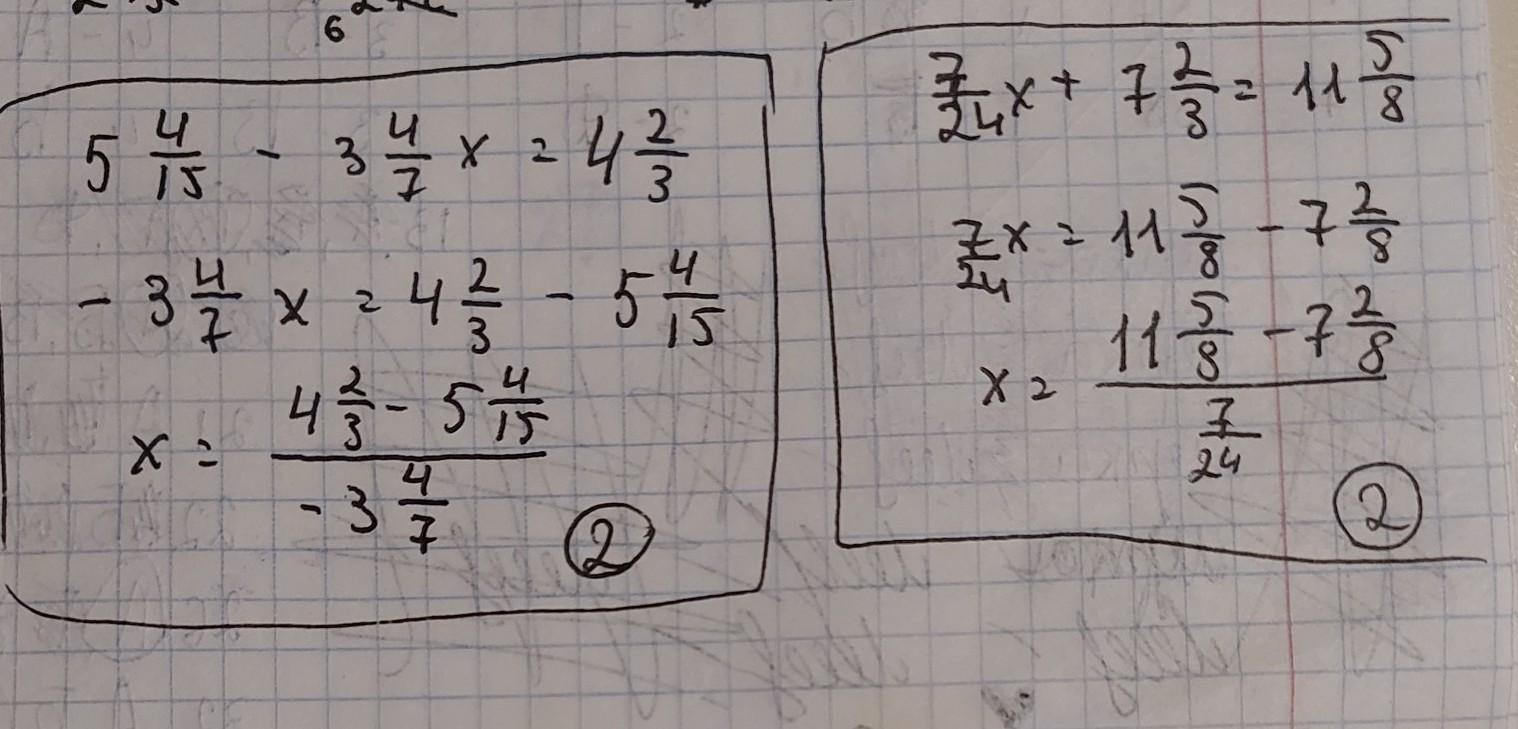 6
5 4/15 - 3 4/7 x = 4 2/3
- 3 4/7 x = 4 2/3 - 5 4/15
x = (4 2/3 - 5 4/15) / (- 3 4/7)
2
7/24 x + 7 2/3 = 11 5/8
7/24 x = 11 5/8 - 7 2/8
x = (11 5/8 - 7 2/8) / (7/24)
2